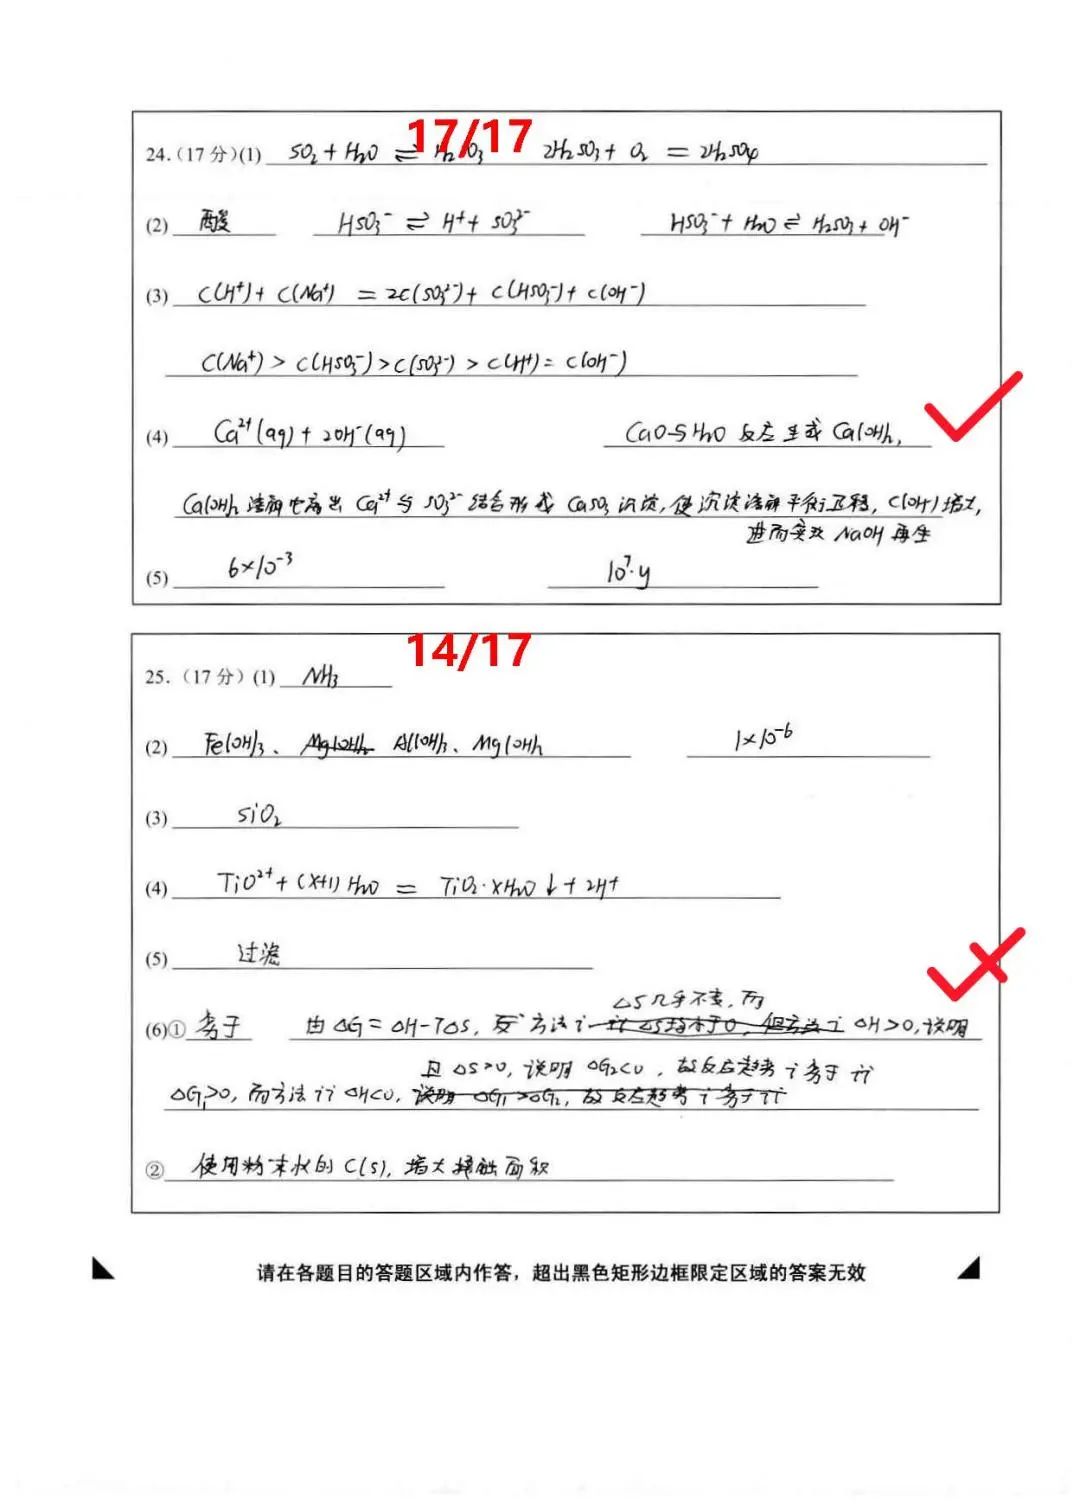 17/17
24.（17 分）(1) SO₂ + H₂O ⇌ H₂SO₃ 2H₂SO₃ + O₂ = 2H₂SO₄
(2) 酸 HSO₃⁻ ⇌ H⁺ + SO₃²⁻ HSO₃⁻ + H₂O ⇌ H₂SO₃ + OH⁻
(3) C(H⁺) + C(Na⁺) = 2C(SO₃²⁻) + C(HSO₃⁻) + C(OH⁻)
C(Na⁺) > C(HSO₃⁻) > C(SO₃²⁻) > C(H⁺) = C(OH⁻)
(4) Ca²⁺(aq) + 2OH⁻(aq) CaO与H₂O 反应生成 Ca(OH)₂,
Ca(OH)₂ 溶解电离出 Ca²⁺ 与 SO₃²⁻ 结合形成 CaSO₃ 沉淀, 使沉淀溶解平衡正移, C(OH⁻)增大,
进而实现 NaOH 再生
(5) 6×10⁻³ 10⁷·y
14/17
25.（17 分）(1) NH₃
(2) Fe(OH)₃、 Mg(OH)₂ Al(OH)₃、Mg(OH)₂ 1×10⁻⁶
(3) SiO₂
(4) TiO²⁺ + (x+1)H₂O = TiO₂·xH₂O↓ + 2H⁺
(5) 过滤
ΔS几乎不变, 而
(6)① 劣于 由 ΔG = ΔH-TΔS, 反 方法i ΔH>0, 说明
且 ΔS>0, 说明 ΔG₂<0, 故反应趋势 i 劣于 ii
ΔG₁>0, 而方法ii ΔH<0, 说明 ΔG₁>ΔG₂, 故反应趋势 i 劣于 ii
② 使用粉末状的 C(s), 增大接触面积
请在各题目的答题区域内作答，超出黑色矩形边框限定区域的答案无效